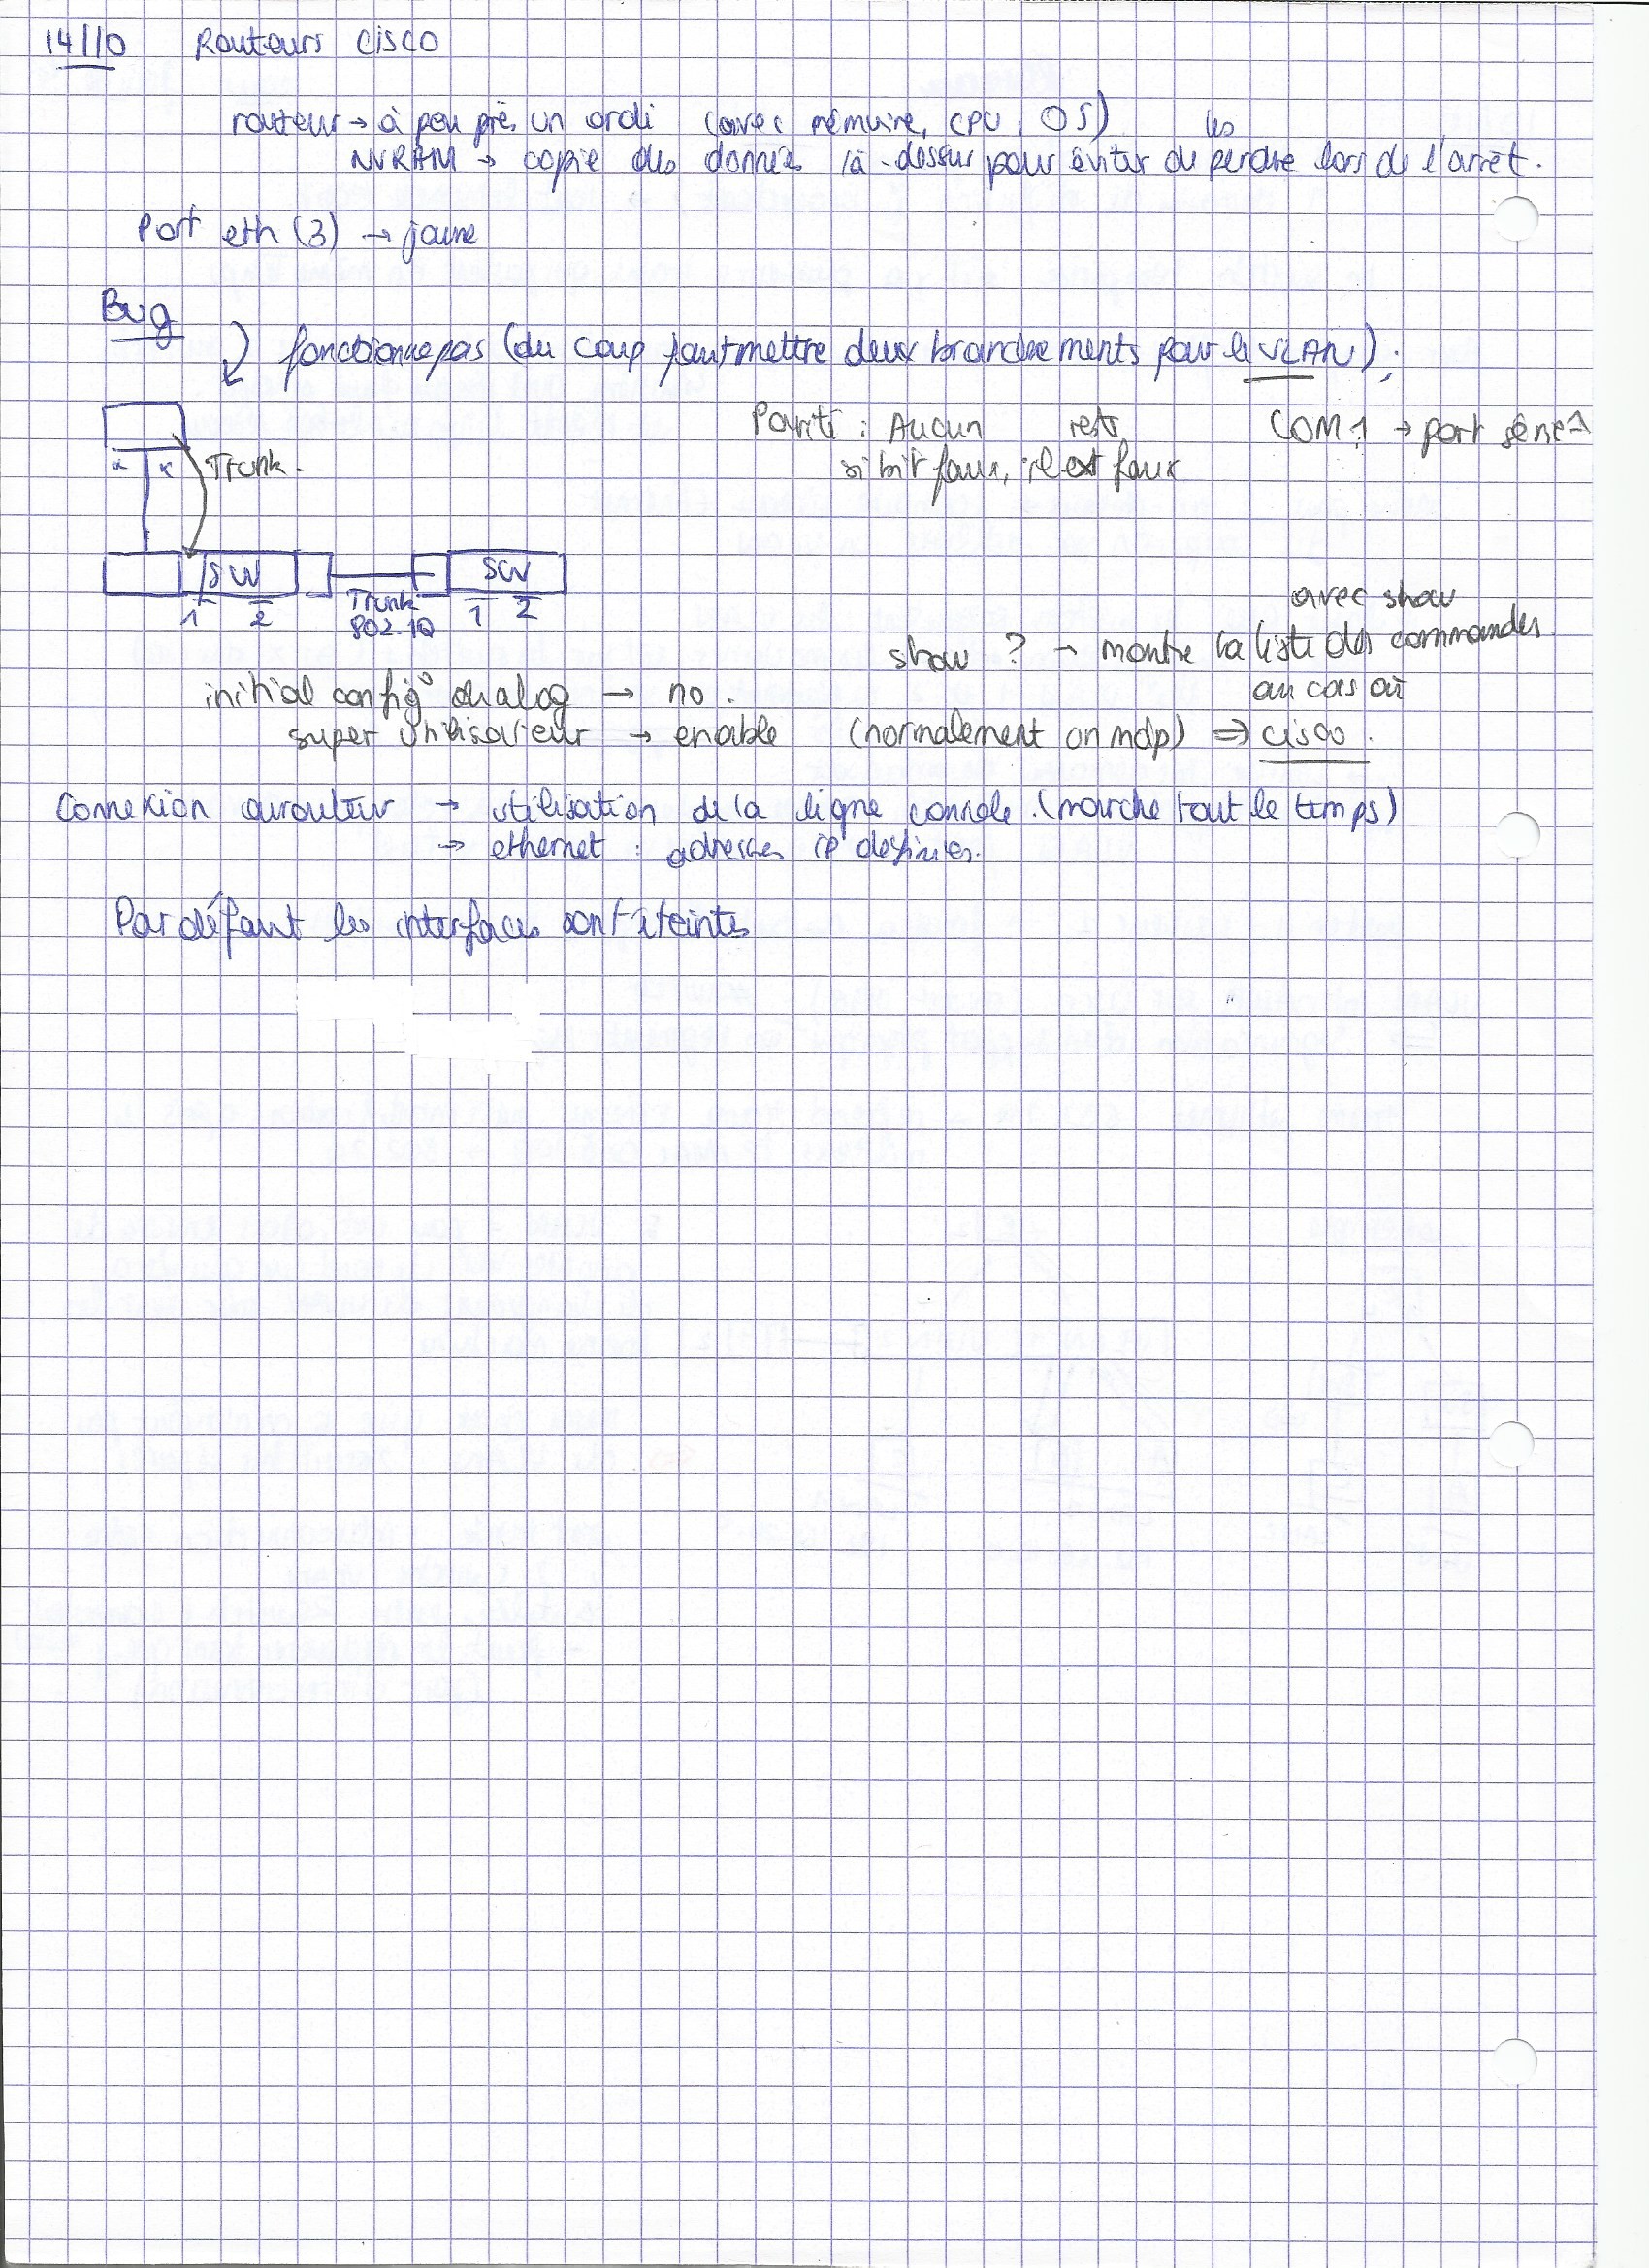 14/10 Routeurs Cisco
routeur → à peu près un ordi (avec mémoire, CPU, OS)
NVRAM → copie des données là-dessus pour éviter de les perdre lors de l'arrêt.
Port eth (3) → jaune
Bug
fonctionne pas (du coup faut mettre deux branchements pour le VLAN);
Parité : Aucun
si bit faux, il reste faux
COM1 → port série
Trunk.
SW
SW
1 2
Trunk
802.1Q
1 2
show ? → montre la liste des commandes avec show
initial config° dialog → no.
super utilisateur → enable (normalement on mdp) ⇒ cisco.
au cas où
Connexion au routeur → utilisation de la ligne console. (marche tout le temps)
→ ethernet : adresses IP définies.
Par défaut les interfaces sont éteintes